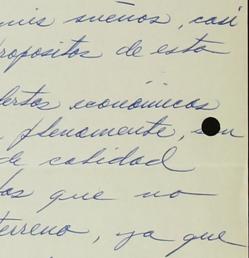 mis sueños, casi
propositos de esta
económicos
plenamente,
de calidad
que no
terreno, ya que